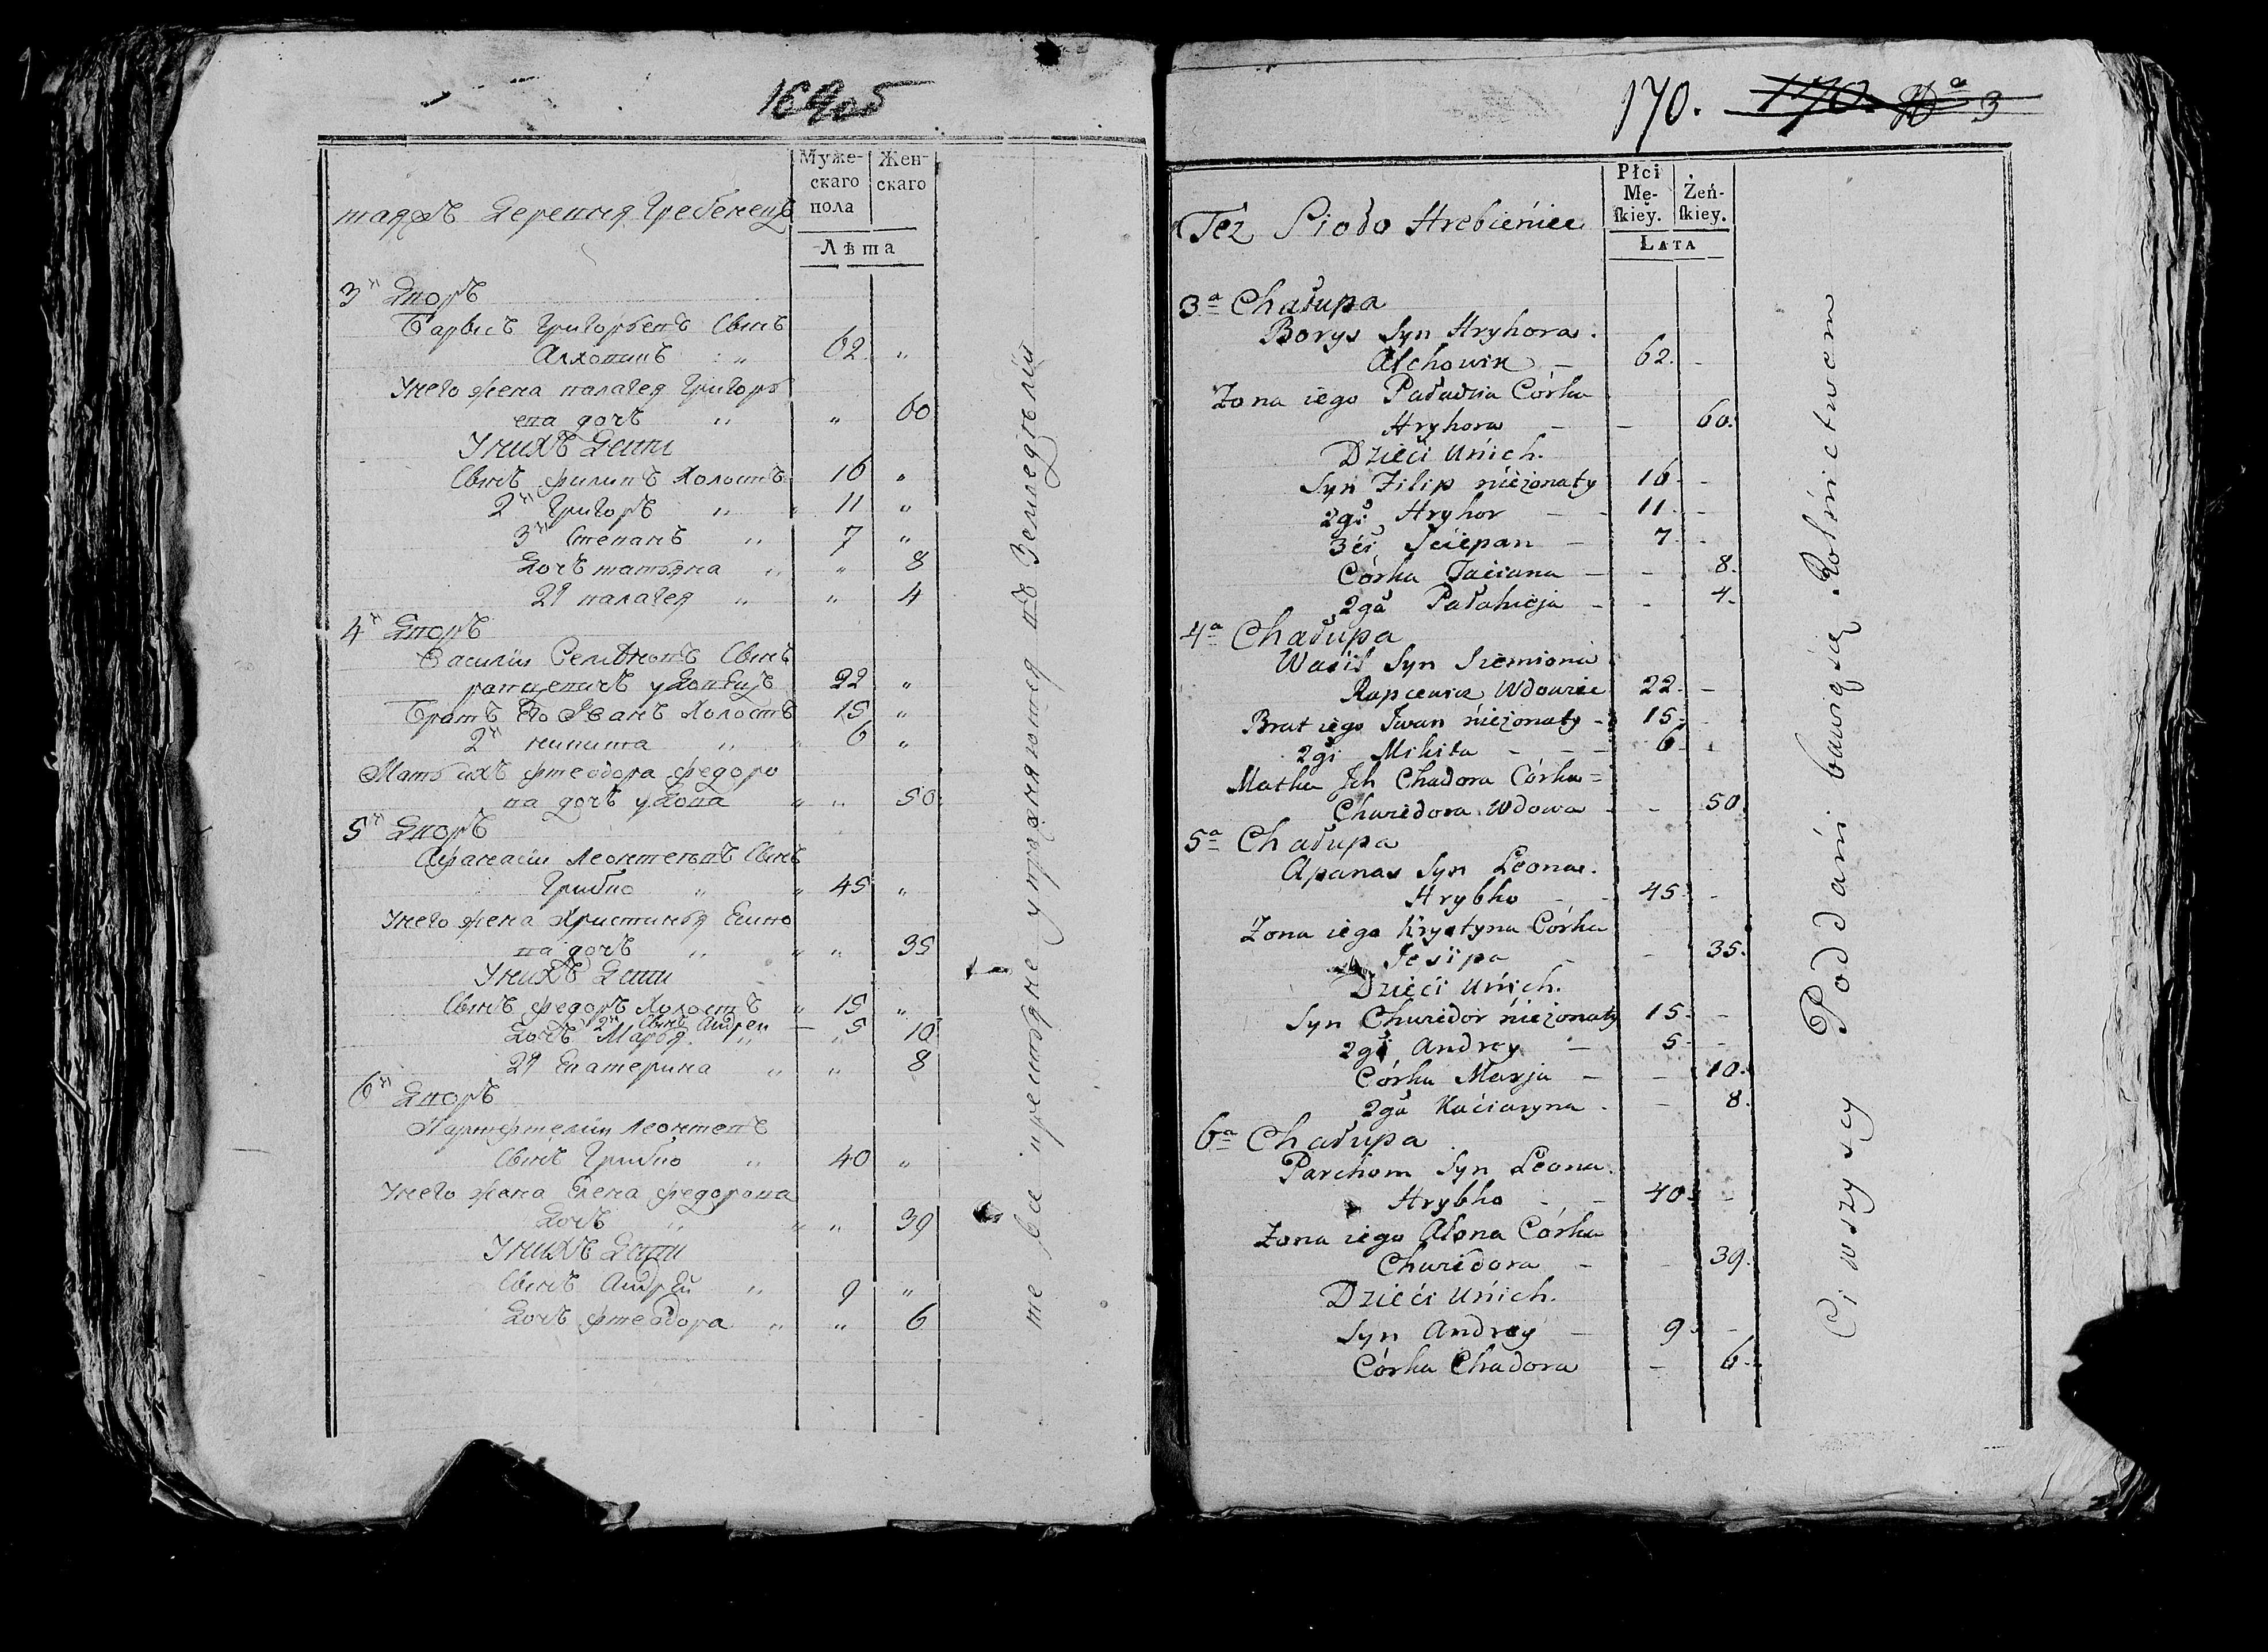 169об
Муже-
скаго
пола
Жен-
скаго
Лѣта
таяжъ Деревня Гребенецъ
3й Дворъ
Барысъ Григорьевъ Сынъ
Алховикъ " 62 "
Унего жена палагея Григорь
ева дочъ " " 60
Унихъ Дети
Сынъ филипъ Холостъ 16 "
2й Григоръ " 11 "
3й Степанъ " 7 "
Дочъ татьяна " " 8
2я палагея " " 4
4й Дворъ
Василии Семионовъ Сынъ
рапцевичъ удовецъ 22 "
Братъ Его Иванъ Холостъ 15 "
2й никита " 6 "
Мать ихъ фтеодора федоро
ва дочъ удова " " 50
5й Дворъ
Афанасии Леонтевъ Сынъ
Грибко " 45 "
Унего жена Христинья Есипо
ва дочъ " " 35
Унихъ Дети
Сынъ федоръ Холостъ 15 "
2й Сынъ Андреи — 5
Дочъ Марья " " 10
2я Екатерина " " 8
6й Дворъ
Парфтелии Леонтевъ
Сынъ Грибко " 40 "
Унего жена Елена федорова
Дочъ " " 39
Унихъ Дети
Сынъ Андрей " 9 "
Дочъ фтеодора " " 6
те все крестьяне упражняются въ Земледелии
170. 170 3
Płci
Mę-
ſkiey.
Żeń-
ſkiey.
LATA
Też Sioło Hrebieniec
3a Chałupa
Borys Syn Hryhora.
Alchowik – 62. –
Żona iego Pałahia Córka
Hryhora – – 60.
Dzieci Unich.
Syn Filip nieżonaty 16 –
2gi Hryhor – 11. –
3ci Sciepan – 7. –
Córka Taciana – – 8.
2ga Pałahieja – – 4.
4a Chałupa
Wasil Syn Siemiona
Rapcewicz Wdowiec 22. –
Brat iego Iwan nieżonaty – 15. –
2gi Mikita – – 6 –
Matka Ich Chadora Córka =
Chwiedora Wdowa – – 50.
5a Chałupa
Apanas Syn Leona.
Hrybko – 45. –
Żona iego Krystyna Córka
Jesipa – – 35.
Dzieci Unich.
Syn Chwiedor nieżonaty 15. –
2gi Andrey – 5 –
Córka Marja – – 10.
2ga Kaciaryna – – 8.
6a Chałupa
Parchom Syn Leona.
Hrybko – – 40. –
Żona iego Alona Córka
Chwiedora – – 39.
Dzieci Unich.
Syn Andrey – 9. –
Córka Chadora – 6.
Ci wszyscy Poddani bawią się Rolnictwem